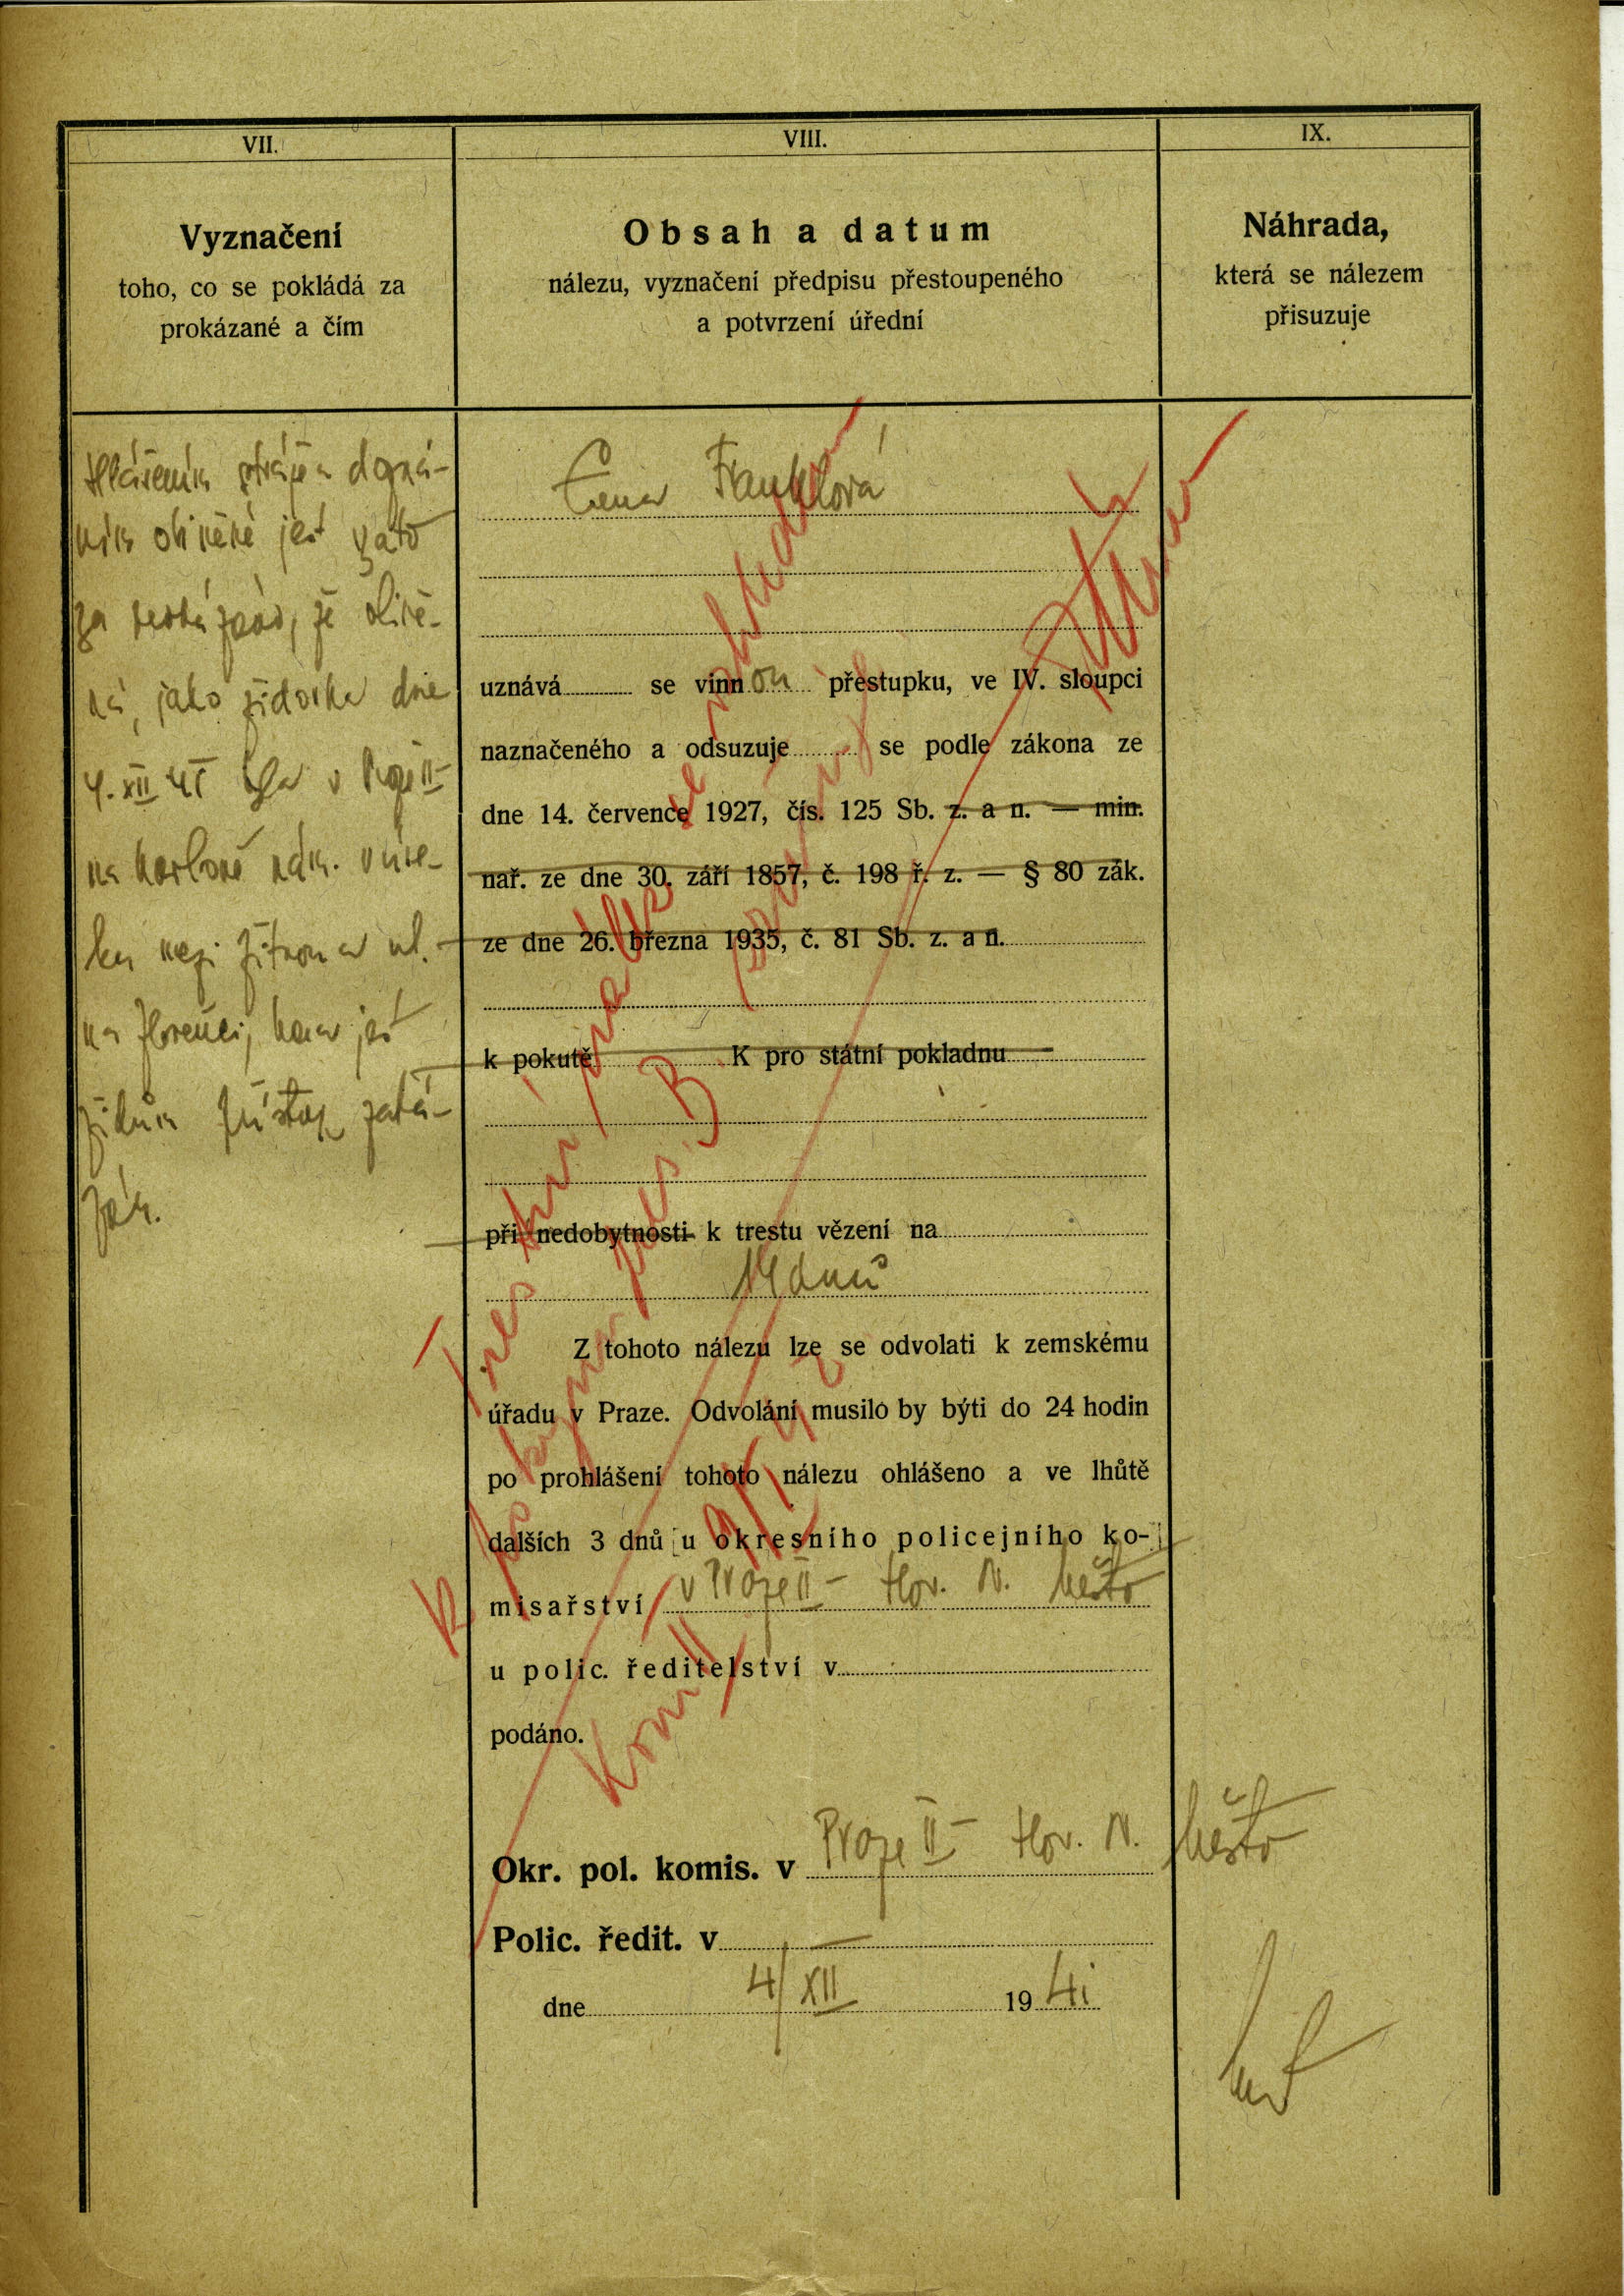 VII.
Vyznačení
toho, co se pokládá za
prokázané a čím
Hlášením stráže a dozná-
ním obviněné jest vzato
za prokázáno, že obvině-
ná, jako židovka dne
4. XII 41 byla v Praze II
na Karlově nám.
mezi Žitnou ul.
na
židům přístup zaká-
zán.
VIII.
Obsah a datum
nálezu, vyznačení předpisu přestoupeného
a potvrzení úřední
Franklová
uznává se vinnou přestupku, ve IV. sloupci
naznačeného a odsuzuje se podle zákona ze
dne 14. července 1927, čís. 125 Sb. z. a n. — min.
nař. ze dne 30. září 1857, č. 198 ř. z. — § 80 zák.
ze dne 26. března 1935, č. 81 Sb. z. a n.
k pokutě K pro státní pokladnu
při nedobytnosti k trestu vězení na
14 dnů
Z tohoto nálezu lze se odvolati k zemskému
úřadu v Praze. Odvolání musilo by býti do 24 hodin
po prohlášení tohoto nálezu ohlášeno a ve lhůtě
dalších 3 dnů u okresního policejního ko-
misařství v Praze II – Hor. N. Město
u polic. ředitelství v
podáno.
Okr. pol. komis. v Praze II – Hor. N. Město
Polic. ředit. v —
dne 4/XII 1941
IX.
Náhrada,
která se nálezem
přisuzuje